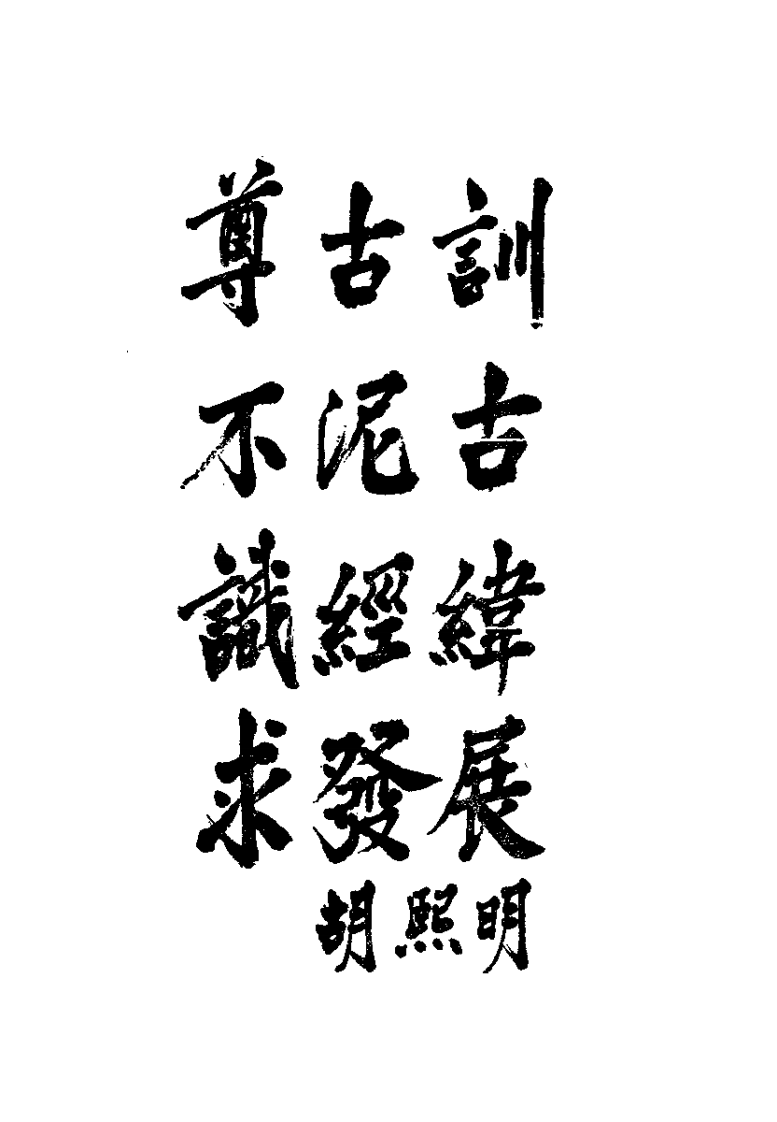 尊古訓
不泥古
識經緯
求發展
胡熙明